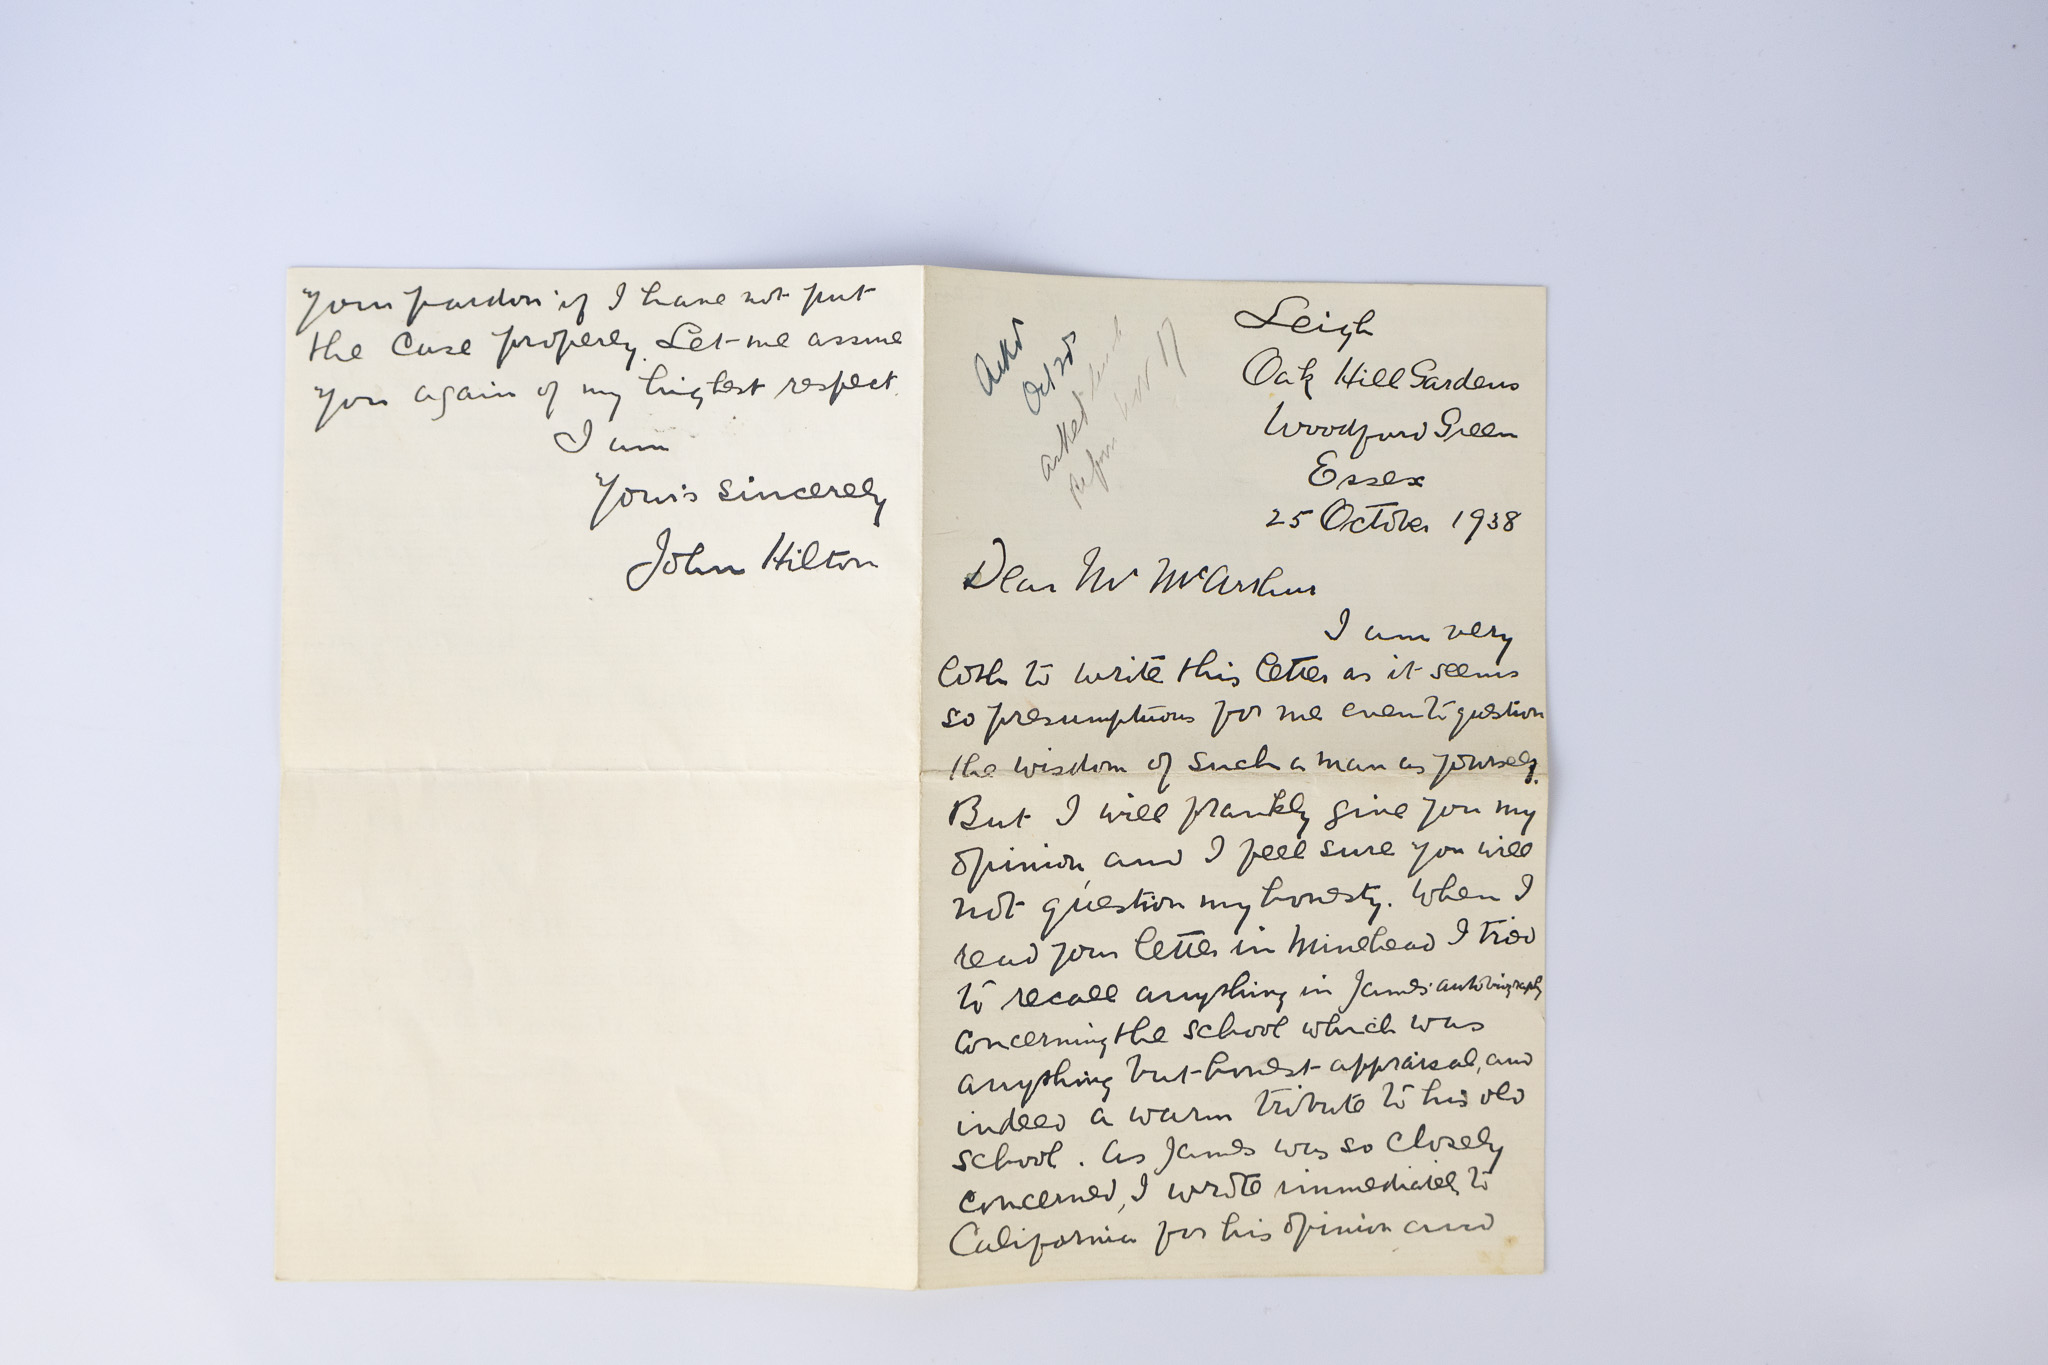 Leigh
Oak Hill Gardens
Woodford Green
Essex
25 October 1938
Ackd
Oct 28
asked
before Nov 17
Dear Mr McArthur
I am very
loth to write this letter as it seems
so presumptuous for me even to question
the wisdom of such a man as yourself.
But I will frankly give you my
opinion, and I feel sure you will
not question my honesty. When I
read your letter in Minehead I tried
to recall anything in James' autobiography
concerning the school which was
anything but honest appraisal, and
indeed a warm tribute to his old
school. As James was so closely
concerned, I wrote immediately to
California for his opinion and
your pardon if I have not put
the case properly. Let me assure
you again of my highest respect.
I am
Yours sincerely
John Hilton